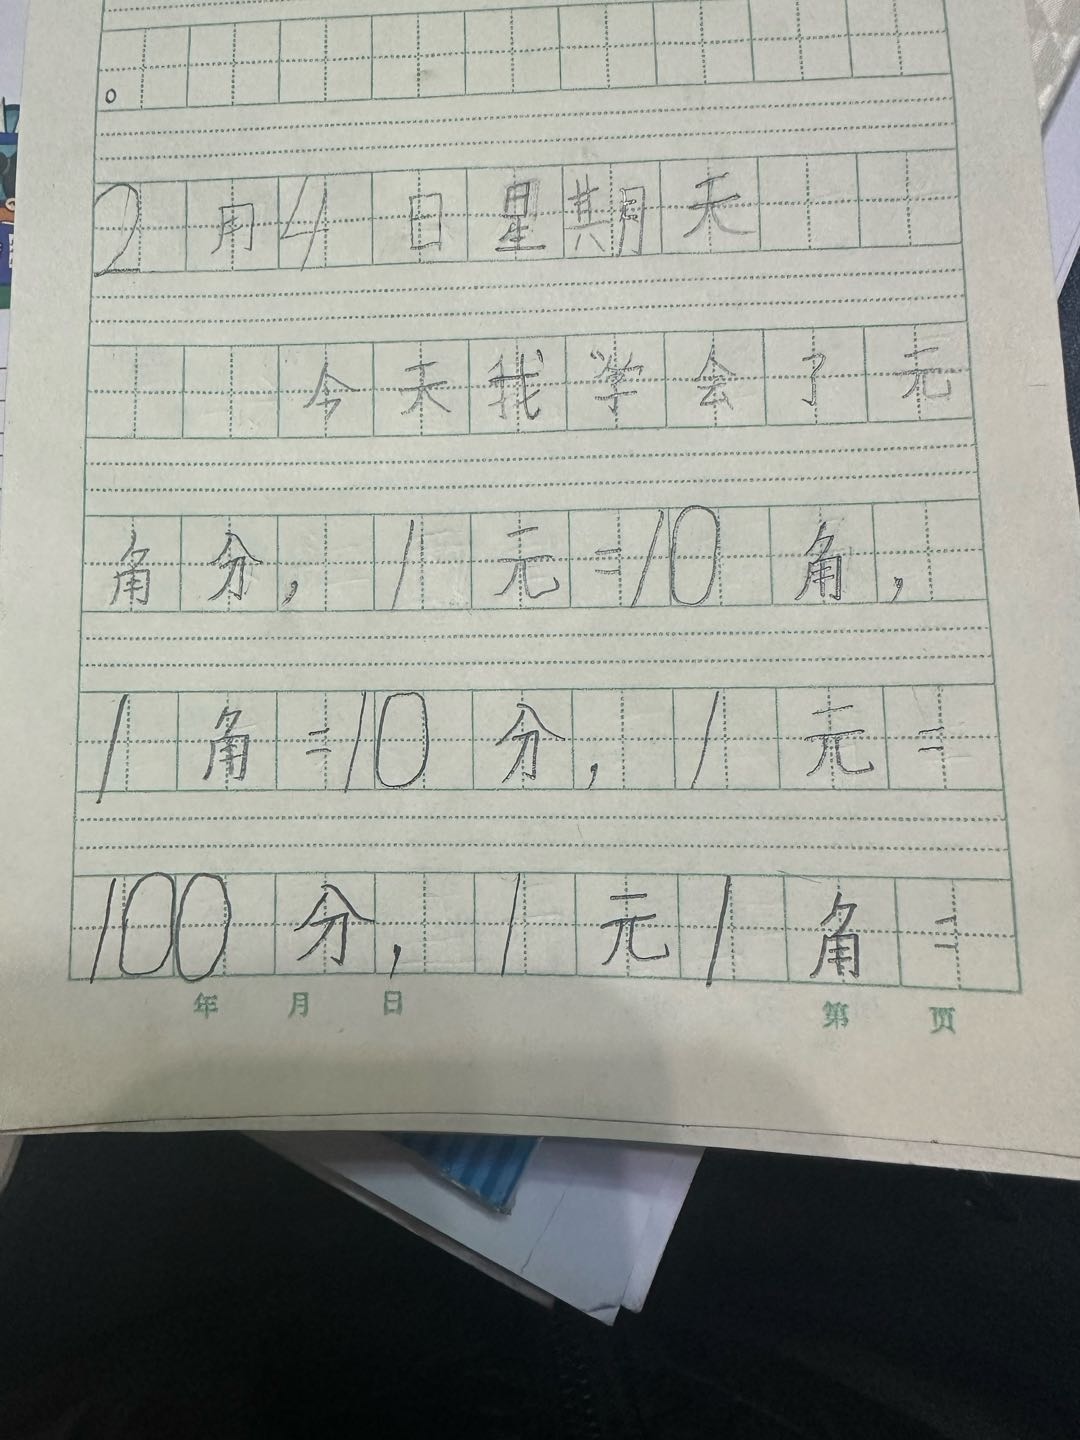 。
2月4日星期天
今天我学会了元
角分，1元=10角，
1角=10分，1元=
100分，1元1角=
年 月 日 第 页